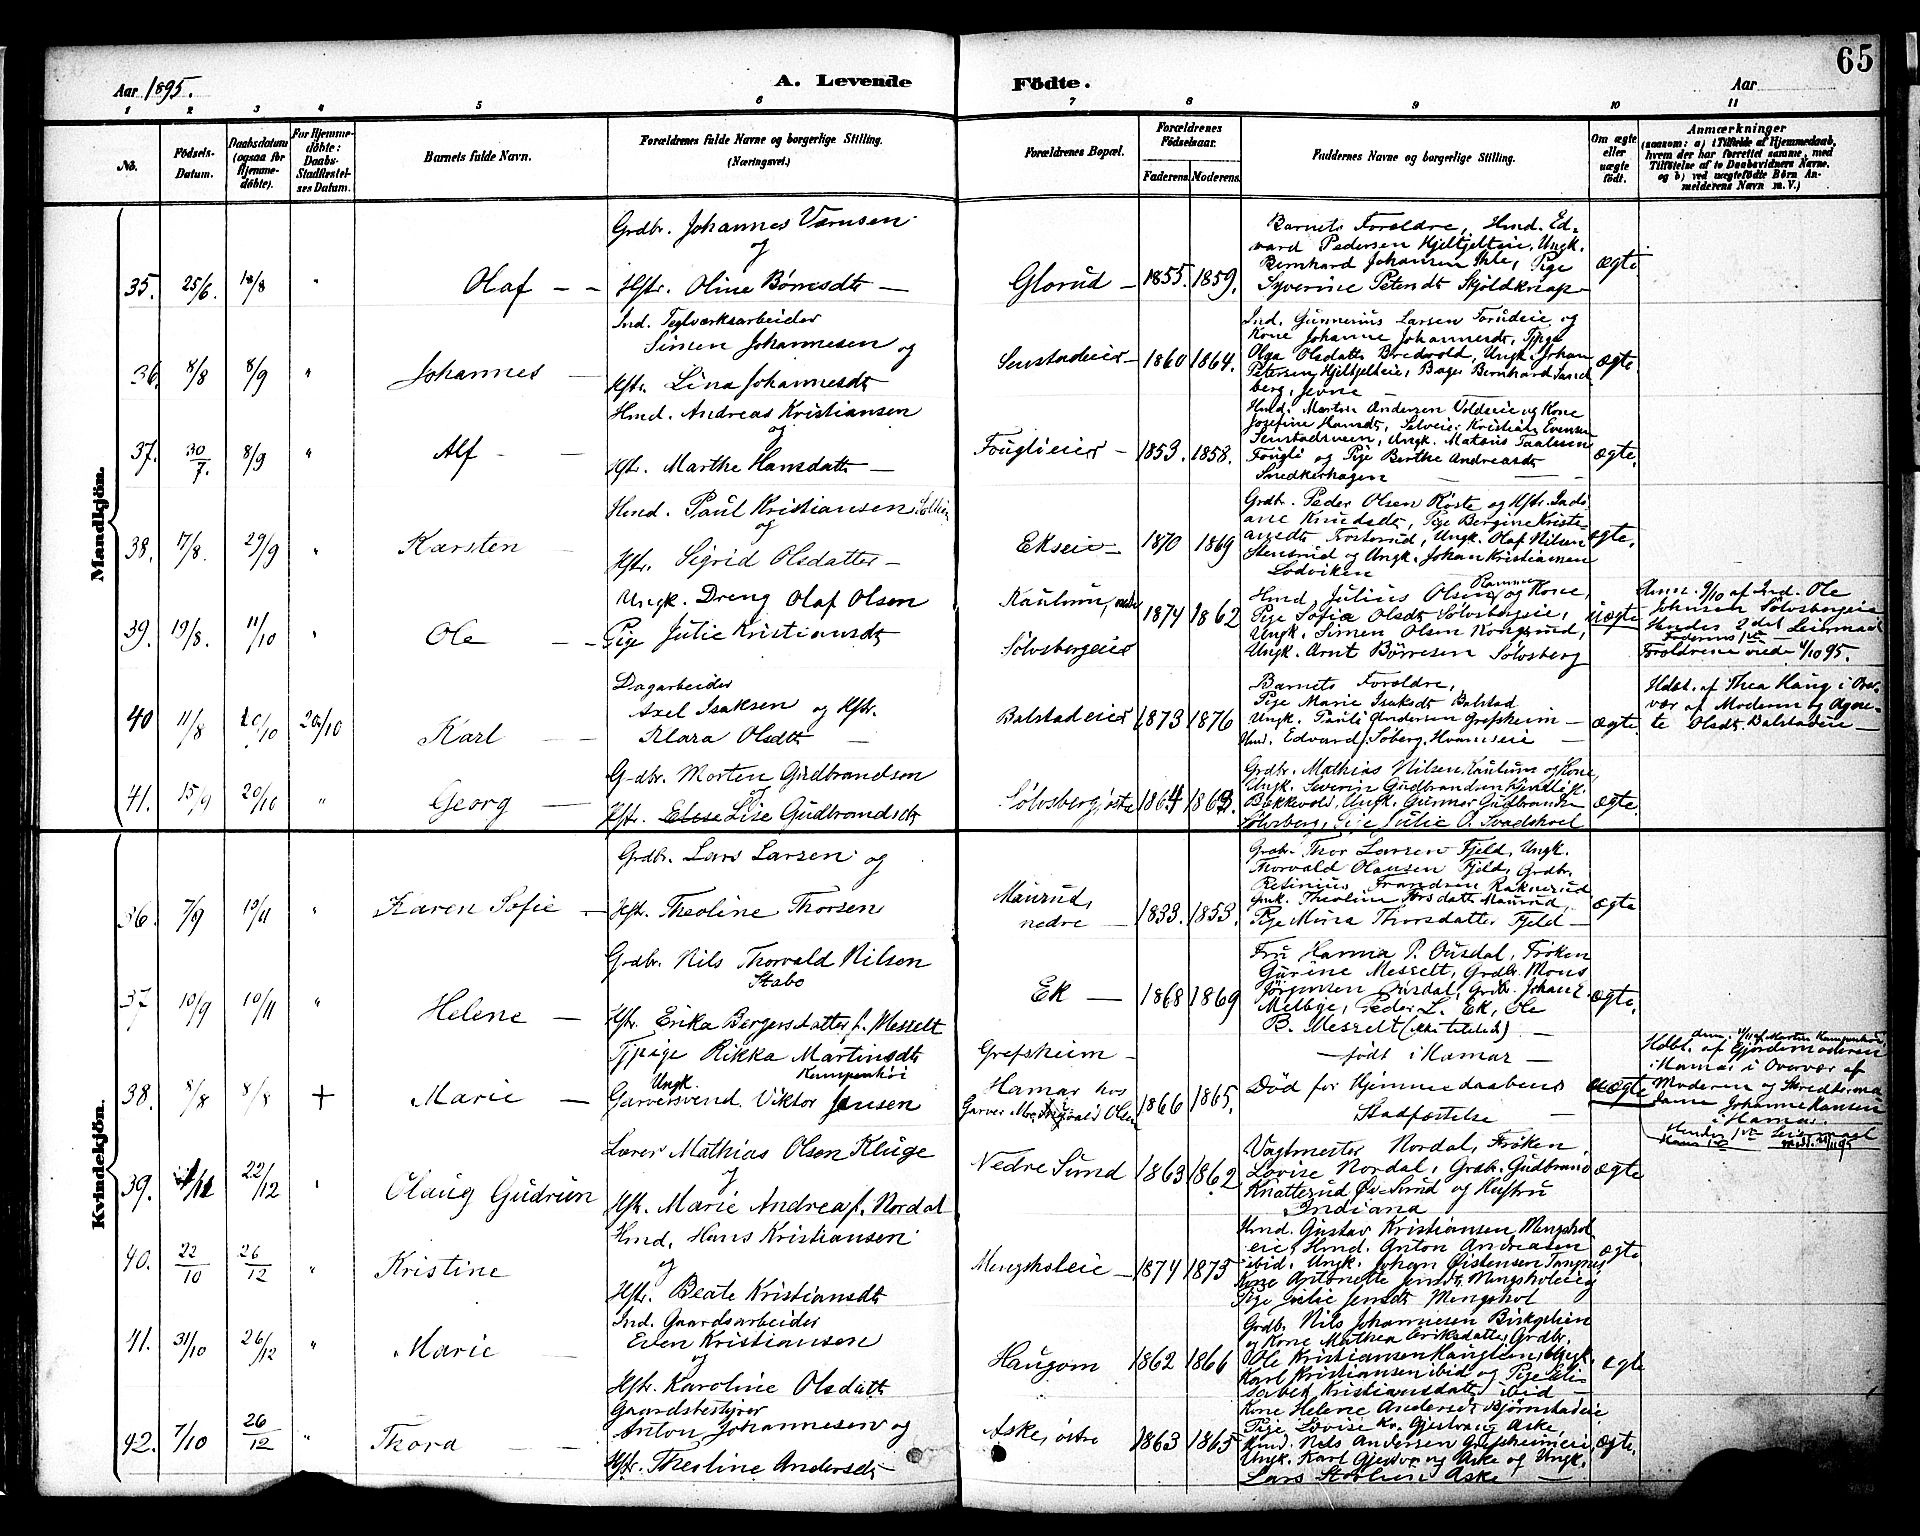 65
Aar 1895.
A. Levende Födte.
Aar
1 2 3 4 5 6 7 8 9 10 11
No.
Födsels-Datum.
Daabsdatum (ogsaa for Hjemme-döbte).
For Hjemme-döbte: Daabs-Stadfæstel-ses Datum.
Barnets fulde Navn.
Forældrenes fulde Navne og borgerlige Stilling. (Næringsvei.)
Forældrenes Bopæl.
Forældrenes Födselsaar.
Faderens. Moderens.
Faddernes Navne og borgerlige Stilling.
Om ægte eller uægte födt.
Anmærkninger
(saasom: a) i Tilfælde af Hjemmedaab, hvem der har forrettet samme, med Tilföielse af to Daabsvidners Navne, og b) ved uægtefödte Börn An-melderens Navn m. V.)
Mandkjön.
35. 25/6 18/8 " Olaf
Grdbr. Johannes
og
Hstr. Oline Børresdtr
Glorud 1855. 1859.
Barnets Forældre, Hmd. Ed-
vard Pedersen Hjeltjeleie, Ungk.
Bernhard Johansen Ihle, Pige
Syverine Petersdtr Skjöldknap
ægte
36. 8/8 8/9 " Johannes
Ind. Teglværksarbeider
Simen Johannesen og
Hstr. Lina Johannesdtr
Senstadeie 1860 1864.
Ind. Gunnerius Larsen Forudeie og
Kone Johanne Johannesdtr, Tjpige
Olga Olsdatter Bredvold, Ungk. Johan
Petersen Hjeltjeleie, Bager Bernhard Sand
berg, Jevne
ægte.
37. 30/7. 8/9 " Alf
Hmd. Andreas Kristiansen
og
Hstr. Marthe Hansdatter
Fouglieie 1853. 1858.
Hmd. Martin Andersen Voldseie og Kone
Josefine Hansdtr, Selveier Kristian Evensen
Senstadsveen, Ungk. Matæus Paalsen
Fougli og Pige Berthe Andreasdtr
Snedkerhagen
ægte.
38. 17/8. 29/9 " Karsten
Hmd. Paul Kristiansen
og
Hstr. Sigrid Olsdatter
Ekseie 1870 1869
Grdbr. Peder Olsen Röste og Hstr. Indi-
ane Knudsdtr, Pige Bergine Kristi-
ansdtr Fosterud, Ungk. Olaf Nilsen
Stensrud og Ungk. Johan Kristiansen
Lodviken
ægte.
39. 19/8. 11/10 " Ole
Ungk. Dreng Olaf Olsen
Pige Julie Kristiansdtr
Kaulum, nedre
Sölvsbergeie
1874 1862
Hmd. Julius Olsen Ramme og Kone,
Pige Sofie Olsdtr Sölvsbergeie,
Ungk. Simen Olsen Kongsrud,
Ungk. Arnt Börresen Sölvsberg
uægte
Anm. 9/10 af Ind. Ole
Johnsen Sölvsbergeie
Hendes 2det Leiermaal
Faderens 1ste
Forældrene viede 11/10 95.
40 11/8 20/10 20/10 Karl
Dagarbeider
Axel Isaksen og Hstr.
Klara Olsdtr
Balstadeie 1873 1876
Barnets Forældre,
Pige Marie Isaksdtr Balstad
Ungk. Paul Andersen Grefsheim
Hmd. Edvard Söberg, Hvamseie
ægte.
Hdbt. af Thea Haug i Over-
vær af Moderen og Agne-
te Olsdtr Balstadeie
41. 15/9 20/10 " Georg
Grdbr. Morten Gudbrandsen
og
Hstr. Elise Lise Gudbrandsdtr
Sölvsberg, östre 1864 1863.
Grdbr. Mathias Nilsen Kaulum og Kone,
Ungk. Severin Gudbrandsen
Bakkevold, Ungk. Gunnar Gudbrandsen
Sölvsberg, Pige Julie O. Svadskoel
ægte.
Kvindekjön.
36. 7/9 10/11 " Karen Sofie
Grdbr. Lars Larsen og
Hstr. Theoline Thorsen
Maurud,
nedre
1833. 1853.
Grdbr. Thor Larsen Fjeld, Ungk.
Thorvald Olausen Fjeld, Grdbr.
Retinius Frandsen Raknerud
Gmk. Theoline Thorsdatter Maurud,
Pige Mina Thorsdatter, Fjeld
ægte
37 10/9 10/11 " Helene
Grdbr. Nils Thorvald Nilsen
Stabo
Hstr. Erika Bergersdatter f. Messelt
Ek 1868 1869
Fru Hanna P. Ousdal, Fröken
Gurine Messelt, Grdbr. Mons
Jörgensen Ousdal, Grdbr. Johan E.
Melbye, Peder L. Ek, Ole
B. Messelt (ikke tilstede)
ægte.
38. 8/8 8/8 + Marie
Tjpige Rikka Martinsdtr
Kampenhöi
Ungk.
Garversvend Viktor Jensen
Grefsheim
Hamar hos
Garver
1866 1865.
födt i Hamar
Död för Hjemmedaabens
Stadfæstelse
uægte
Hdbt. af Gjordemoderen
i Hamar i Overvær af
Moderen og
Johanne Hansen
i Hamar.
Hendes 1ste Leiermaal
39. 22/12 " Olaug Gudrun
Lærer Mathias Olsen Kluge
og
Hstr. Marie Andrea f. Nordal
Nedre Sund 1863 1862
Vagtmester Nordal, Fröken
Lovise Nordal, Grdbr. Gudbrand
Knatterud Öv. Sund og Hustru
Indiana
ægte
40. 22/10 26/12 " Kristine
Hmd. Hans Kristiansen
og
Hstr. Beate Kristiansdtr
Mengsholeie 1874 1873
Hmd. Gustav Kristiansen Mengshol
eie, Hmd. Anton Andreasen
ibid. Ungk. Johan Östensen Tangnes
Kone Antonette Jensdtr, Mengsholeie og
Pige Julie Jensdtr Mengshol
ægte
41. 31/10 26/12 " Marie
Ind. Gaardsarbeider
Even Kristiansen
og
Hstr. Karoline Olsdatter
Haugom 1862 1866
Grdbr. Nils Johannesen Birkelien
og Kone Mathea Eriksdatter, Grdbr.
Ole Kristiansen Hauglien, Ungk.
Karl Kristiansen ibid og Pige Eli-
sabet Kristiansdatter ibid
ægte
42. 7/10 26/12 " Thora
Gaardsbestyrer
Anton Johannesen og
Hstr. Theoline Andersdtr
Aske, östre 1863 1865
Kone Helene Andersdtr Björnstadeie
Pige Lovise Kr. Gjestvang Aske,
Hmd. Nils Andersen Grefsheimeie
Ungk. Karl Aske og Ungk.
Lars Aske
ægte.